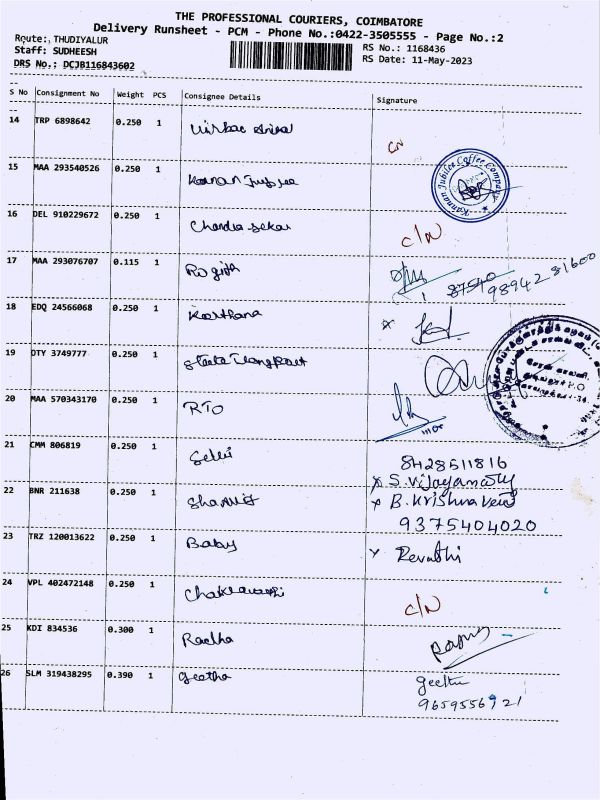 THE PROFESSIONAL COURIERS, COIMBATORE
Delivery Runsheet - PCM - Phone No.:0422-3505555 - Page No.:2
Route: THUDIYALUR
Staff: SUDHEESH
DRS No.: DCJB116843602
RS No.: 1168436
RS Date: 11-May-2023
S No Consignment No Weight PCS Consignee Details Signature
14 TRP 6898642 0.250 1
15 MAA 293540526 0.250 1 Kannan Jubilee
Kannan Jubilee Coffee Company
16 DEL 910229672 0.250 1 Chandra Sekar C/N
17 MAA 293076707 0.115 1 Rogith 87540 98942 81600
18 EDQ 24566068 0.250 1 Keerthana
19 DTY 3749777 0.250 1 State Transport
20 MAA 570343170 0.250 1 RTO
21 CMM 806819 0.250 1 Selvi 8428511816
S. Vijayamary
22 BNR 211638 0.250 1 B. Krishnaveni
9375404020
23 TRZ 120013622 0.250 1 Baby Revathi
24 VPL 402472148 0.250 1 Chakravarthi C/N
25 KDI 834536 0.300 1 Radha
26 SLM 319438295 0.390 1 Geetha
9659556921